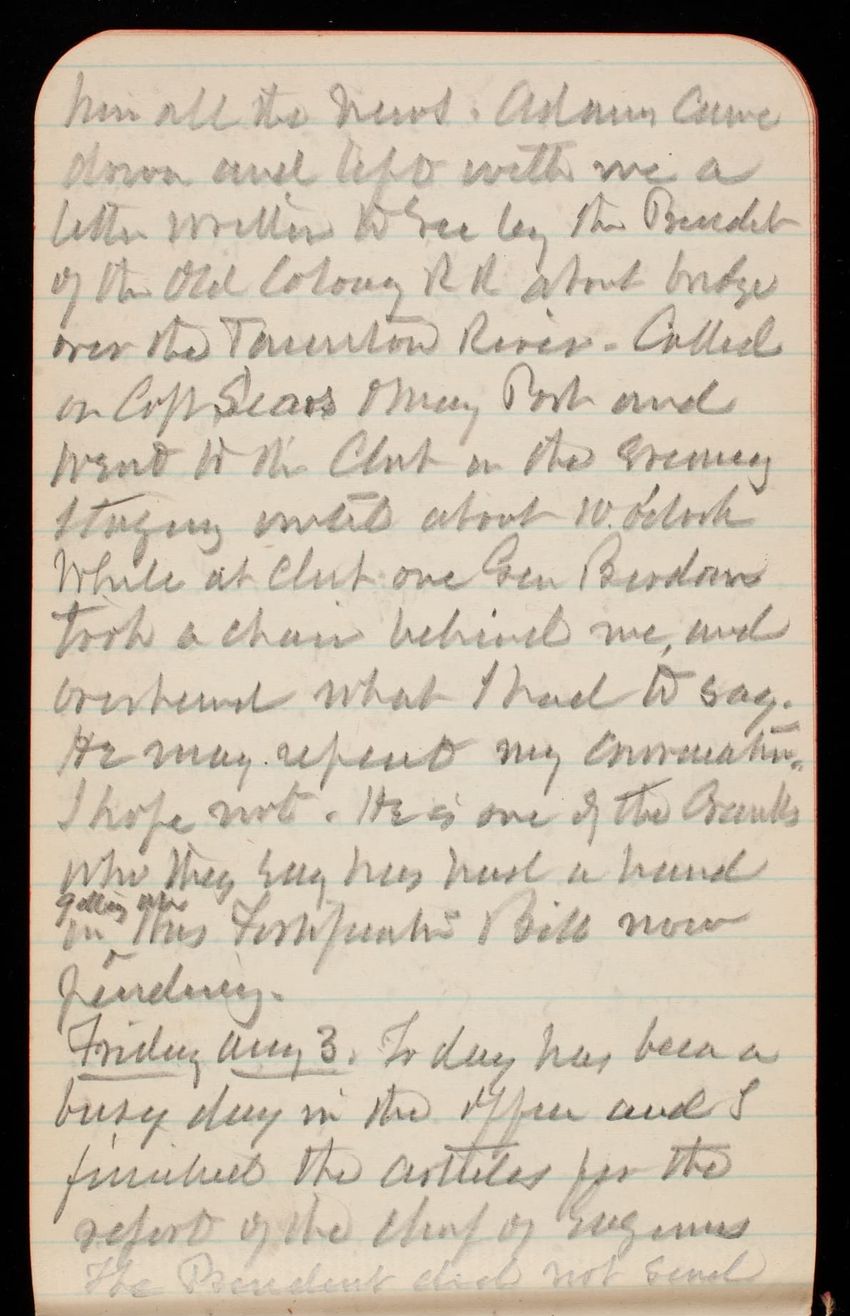 him all the news. Adams came
down and left with me a
letter written to Sec by the Presdet
of the Old Colony R R about bridge
over the Taunton River. Called
on Capt Sears & May Post and
went to the Club in the evening
staying until about 10. o'clock
While at Club one Gen Berdan
took a chair behind me, and
overheard what I had to say.
He may repeat my conversation.
I hope not. He is one of the Cranks
who they say has had a hand
getting up
in this Fortification Bill now
pending.
Friday Aug 3. To day has been a
busy day in the office and I
finished the articles for the
report of the Chief of Engineers
The President did not send